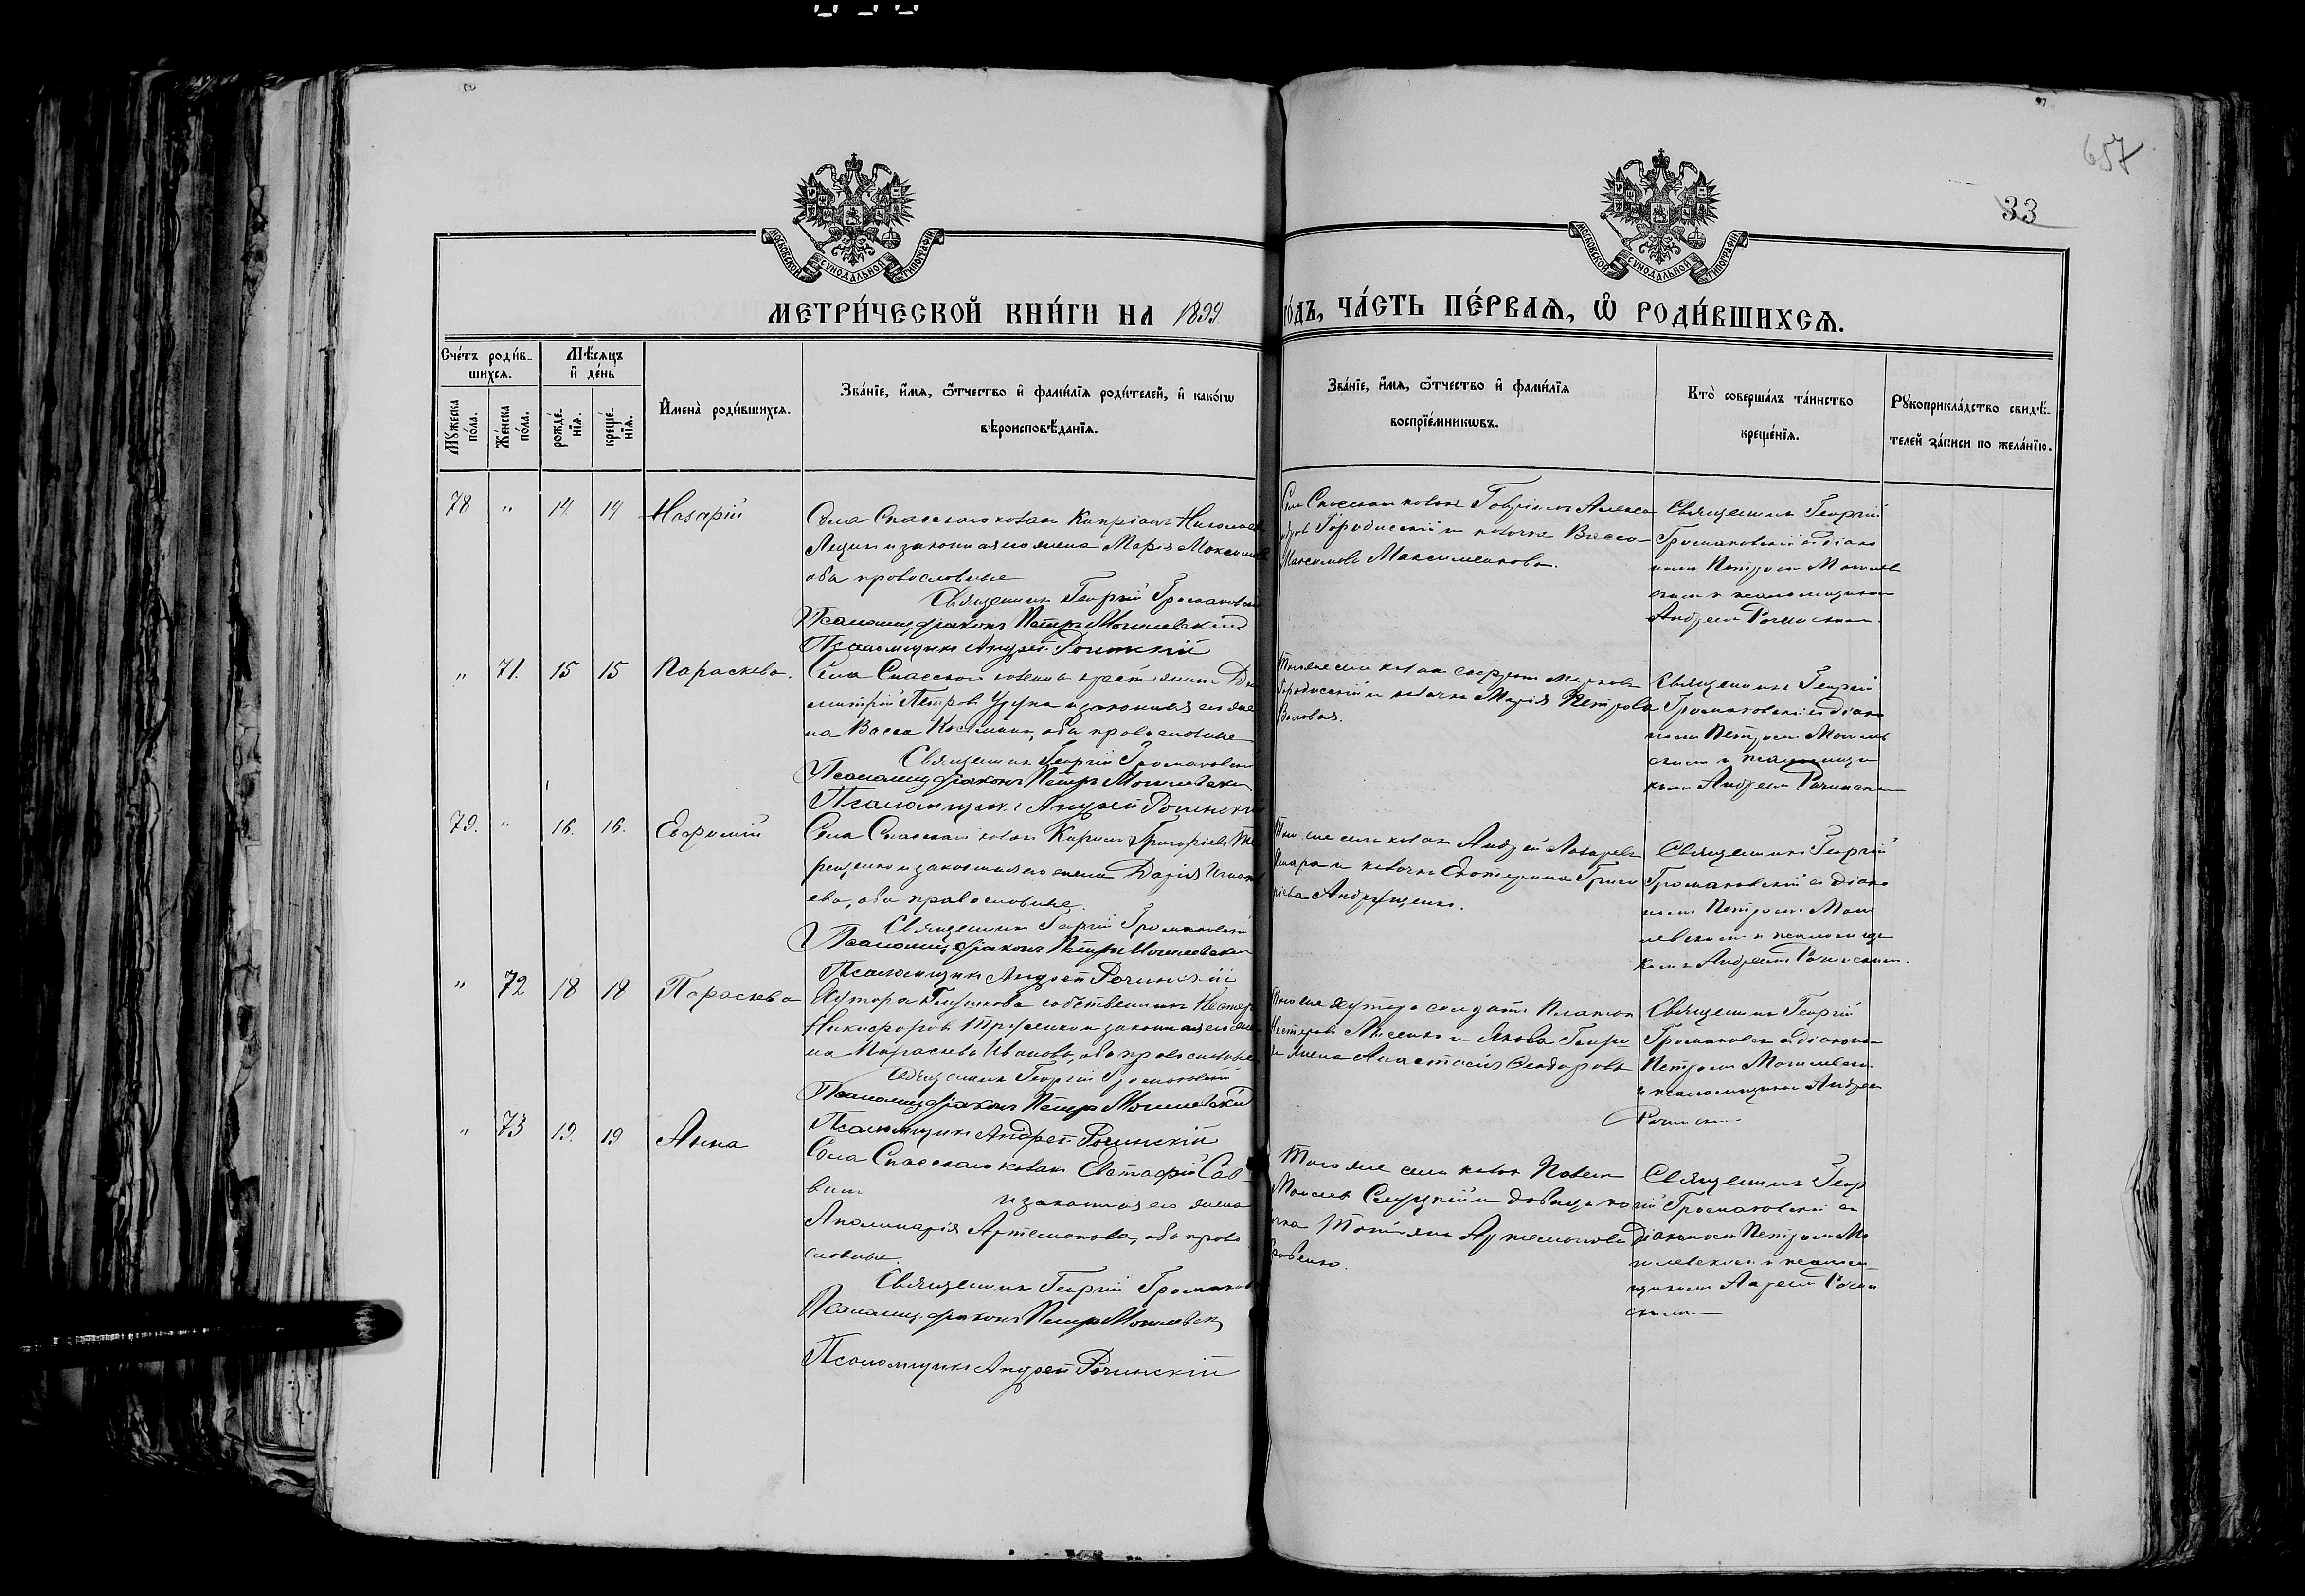 657
33
МОСКОВСКОЙ СѴНОДАЛЬНОЙ ТИПОГРАФІИ
МОСКОВСКОЙ СѴНОДАЛЬНОЙ ТИПОГРАФІИ
МЕТРИ́ЧЕСКОЙ КНИ́ГИ НА 1899.
ГО́ДЪ, ЧА́СТЬ ПЕ́РВАѦ, Ѽ РОДИ́ВШИХСѦ.
Сче́тъ роди́в-
шихсѧ.
Мѣ́сѧцъ
и҆ де́нь
Мꙋ́жеска по́ла.
Же́нска по́ла.
рожде́-
нїѧ.
креще́-
нїѧ.
И҆мена̀ роди́вшихсѧ.
Зва́нїе, и҆́мѧ, ѻ҆́тчество и҆ фами́лїѧ роди́телей, и҆ како́гѡ
вѣроисповѣ́данїѧ.
Зва́нїе, и҆́мѧ, ѻ҆́тчество и҆ фами́лїѧ
воспрїе́мникѡвъ.
Кто̀ соверша́лъ та́инство
креще́нїѧ.
Рꙋкоприкла́дство свидѣ́-
телей за́писи по жела́нїю.
78 " 14. 14 Назарій
Села Спасскаго козакъ Кипріанъ Николаевъ
и законная его жена Марія Максимова
оба православные
Священникъ Георгій Громаковскій
Псаломщ. діаконъ Петръ Могилевскій
Псаломщикъ Андрей Рочинскій
Села Спасскаго козакъ Гавріилъ Алекса
Городисскій и козачка Васса
Максимова Максименкова.
Священникъ Георгій
Громаковскій съ діако
номъ Петромъ Могилев
скимъ и псаломщикомъ
Андреемъ Рочинскимъ
" 71. 15 15 Параскева.
Села Спасскаго крестьянинъ Ди
митрій Петровъ и законная его же
на Васса, оба православные
Священникъ Георгій Громаковскій
Псаломщ. діаконъ Петръ Могилевскій
Псаломщикъ Андрей Рочинскій
Того же села козакъ
Городисскій и козачка Марія Петрова
Волова.
Священникъ Георгій
Громаковскій съ діако
номъ Петромъ Могилев
скимъ и псаломщи
комъ Андреемъ Рочинским
79. " 16. 16. Евфимій
Села Спасскаго козакъ Кирилъ Григорьевъ Те
рещенко и законная его жена Дарія Игнать
ева, оба православные.
Священникъ Георгій Громаковскій
Псаломщ. діаконъ Петръ Могилевскій
Псаломщикъ Андрей Рочинскій
Того же села козакъ Андрей Лазаревъ
и козачка Екатерина Григо
рієва Андрущенко.
Священникъ Георгій
Громаковскій съ діако
номъ Петромъ Моги
левскимъ и псаломщи
комъ Андреемъ Рочинскимъ.
" 72 18 18 Параскева
Хутора собственникъ Нестеръ
Никифоровъ и законная его же
на Параскева Иванова, оба православные
Священникъ Георгій Громаковскій
Псаломщ. діаконъ Петръ Могилевскій
Псаломщикъ Андрей Рочинскій
Того же хутора солдатъ Платонъ
Нестеровъ Лысенко и
жена Анастасія Феодорова
Священникъ Георгій
Громаковск съ діакономъ
Петромъ Могилевск.
и псаломщикомъ Андреем
Рочинским
" 73 19. 19 Анна
Села Спасскаго козакъ Евстафій Сав
вин и законная его жена
Аполинарія Артемонова, оба право
славные.
Священникъ Георгій Громаков
Псаломщ. діаконъ Петръ Могилевск
Псаломщикъ Андрей Рочинскій
Того же села козакъ Павелъ
Моисеев и девица ко
зачка Татіяна Артемонова
Священникъ Геор
гій Громаковскій съ
діакономъ Петромъ Мо
гилевскимъ и псалом
щикомъ Андреем Рочин
скимъ